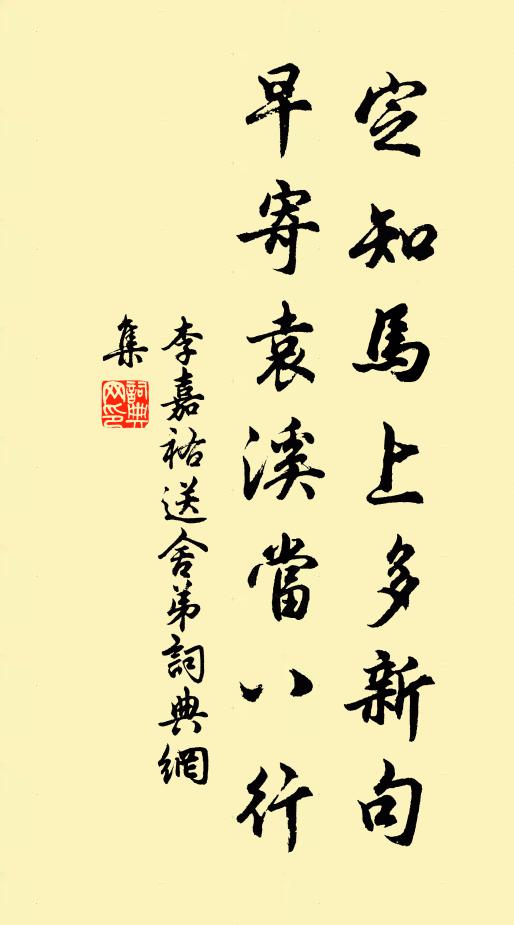 定知馬上多新句
早寄袁溪當八行
李嘉祐送舍弟詞典網
集
詞典
网印